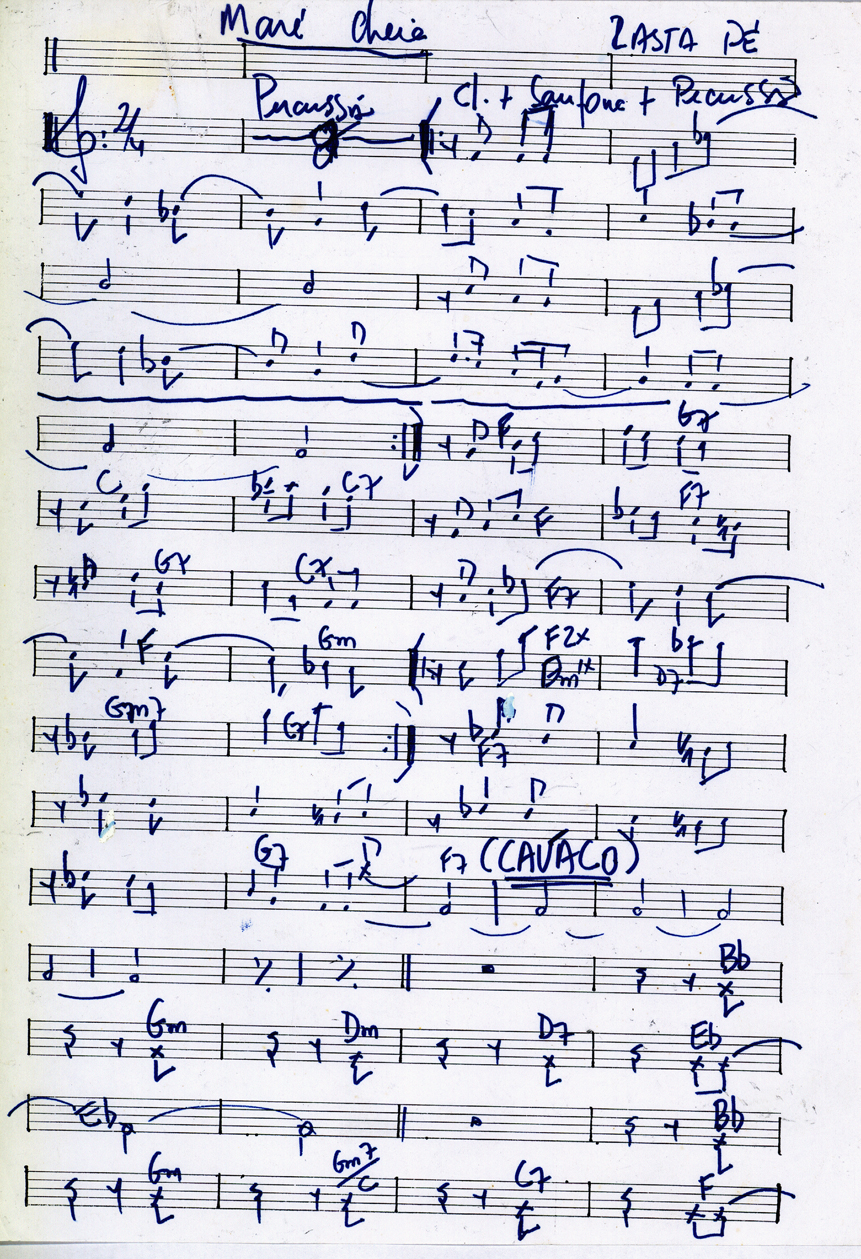 Maré cheia ZASTA PÉ
Percussão Cl. + Sanfona + Percussão
2/4
F G7
C C7 F F7
G7 C7 F7
F Gm F 2x Dm 1x D7
Gm7 G7 F7
G7 F7 (CAVACO)
Bb
Gm Dm D7 Eb
Eb Bb
Gm Gm7/C C7 F